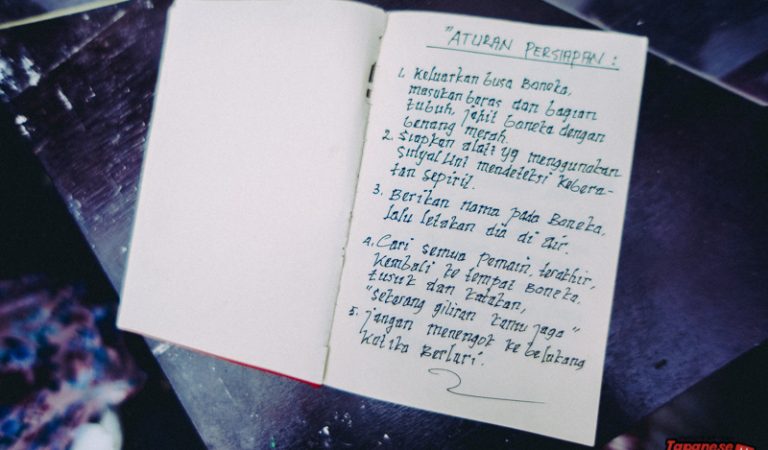 "ATURAN PERSIAPAN :
1. Keluarkan busa Boneka,
masukan beras dan bagian
tubuh, jahit boneka dengan
benang merah.
2. Siapkan alat yg menggunakan
Sinyal Uni mendeteksi Kebera-
tan Sepiril.
3. Berikan nama pada Boneka,
lalu letakan dia di Air.
4. Cari Semua Pemain, terakhir,
Kembali ke tempat Boneka.
tusuk dan katakan,
"Sekarang giliran kamu jaga"
5. Jangan menengok ke belakang
Katika Berlari.
Japanese